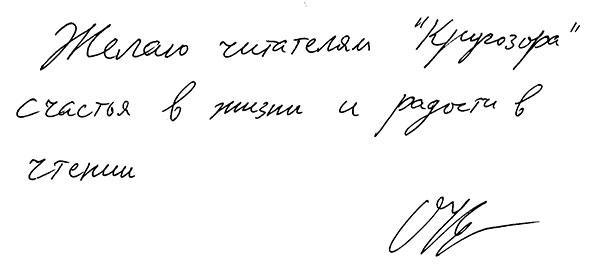 Желаю читателям "Кругозора"
счастья в жизни и радости в
чтении